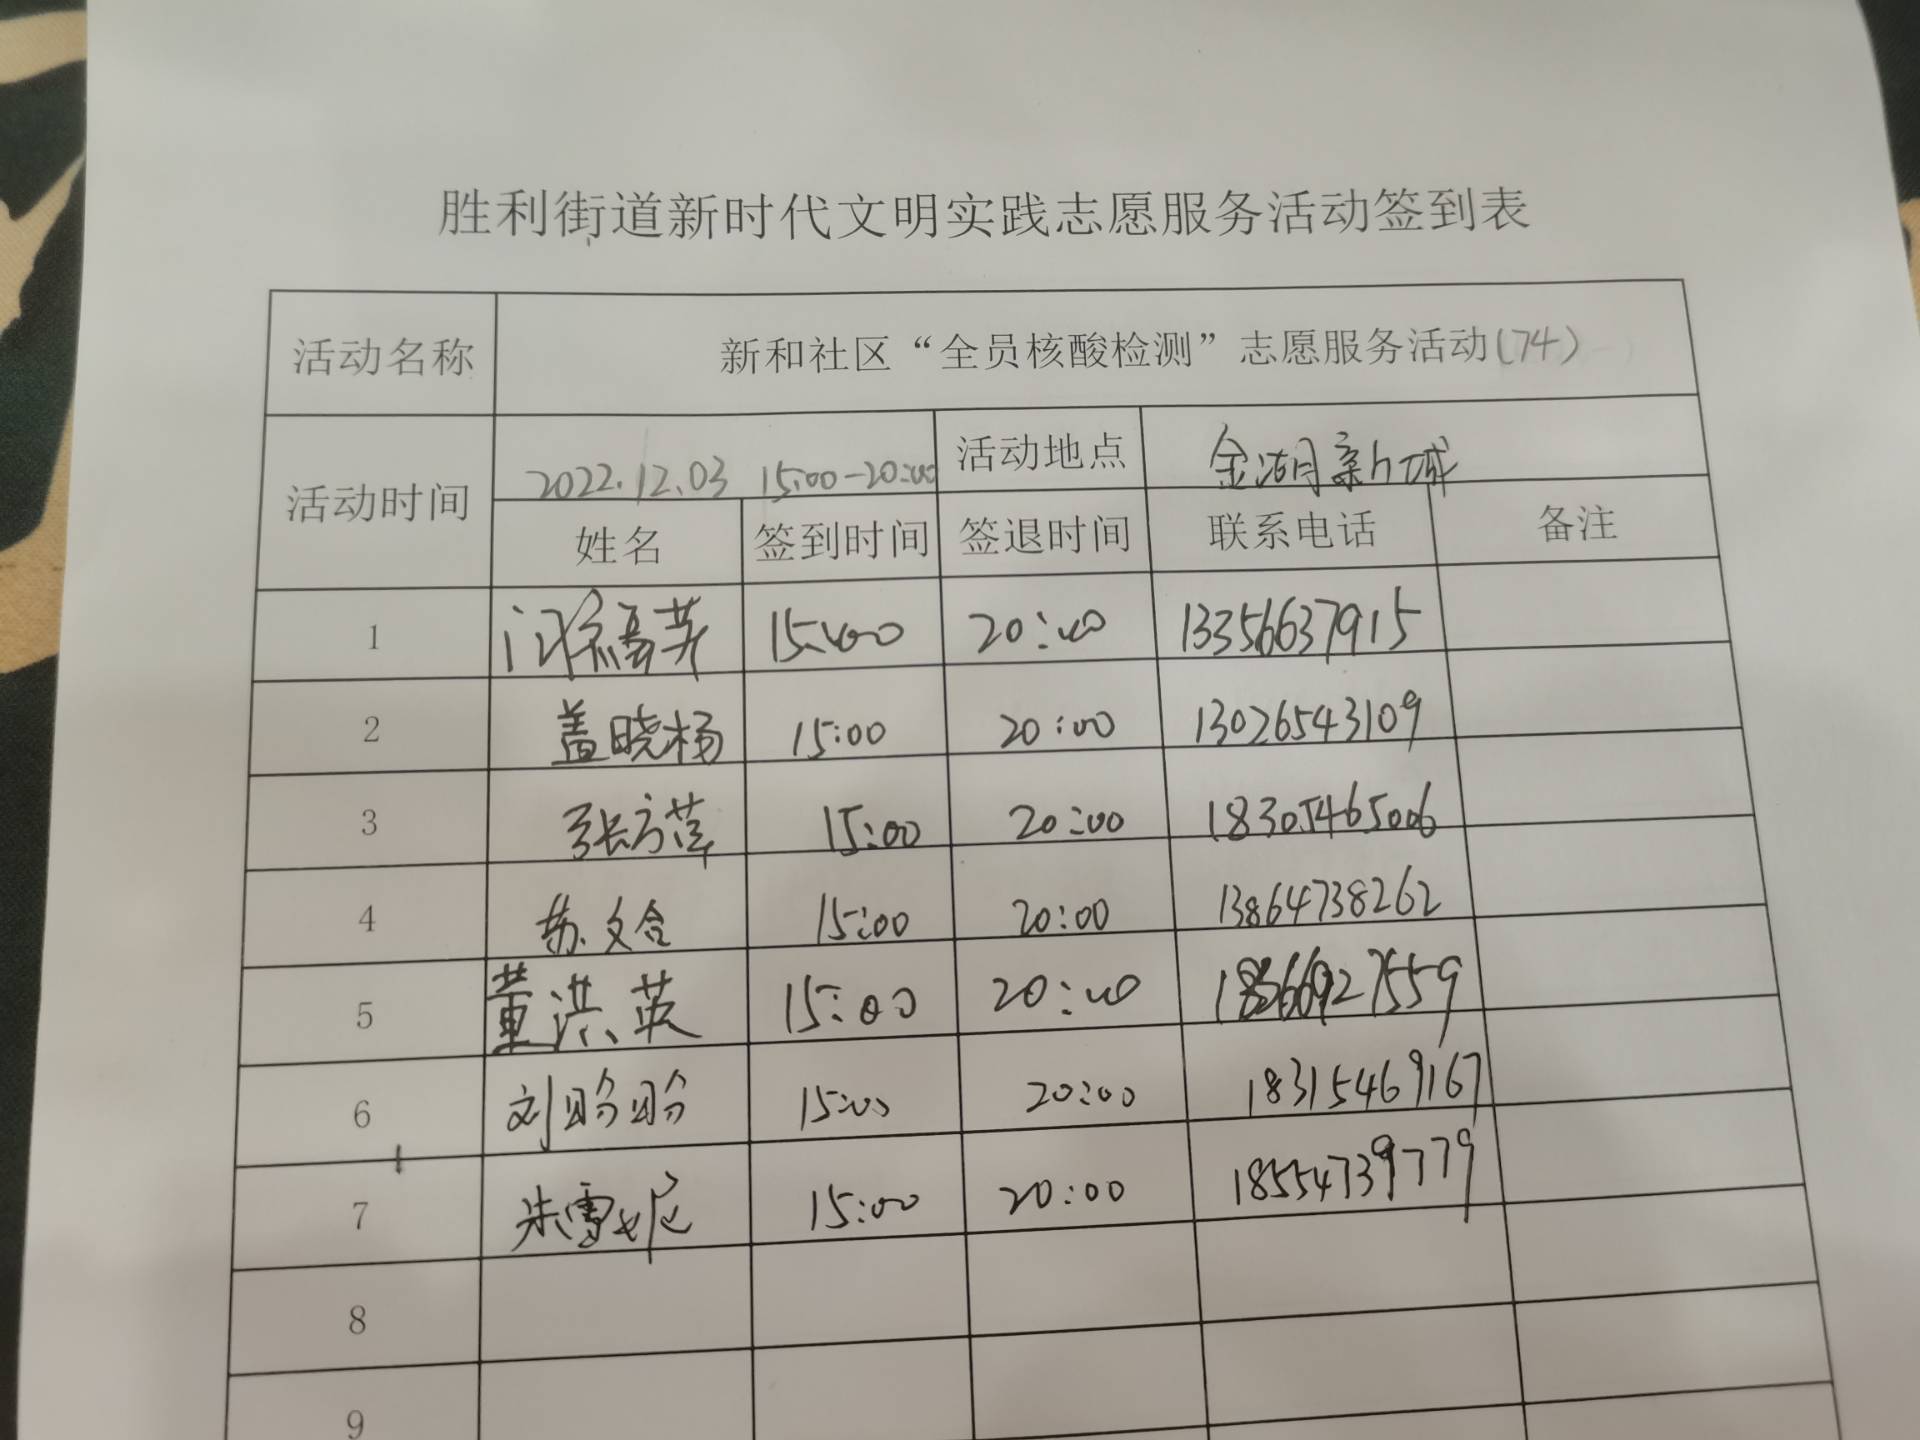 胜利街道新时代文明实践志愿服务活动签到表
活动名称 新和社区“全员核酸检测”志愿服务活动(74)
活动时间 2022.12.03 15:00-20:00 活动地点 金湖新城
姓名 签到时间 签退时间 联系电话 备注
1 15:00 20:00 13356637915
2 盖晓杨 15:00 20:00 13026543109
3 张方萍 15:00 20:00 18305465006
4 苏文合 15:00 20:00 13864738262
5 董洪英 15:00 20:00 18366927559
6 刘盼盼 15:00 20:00 18315469167
7 朱雪妮 15:00 20:00 18554739779
8
9